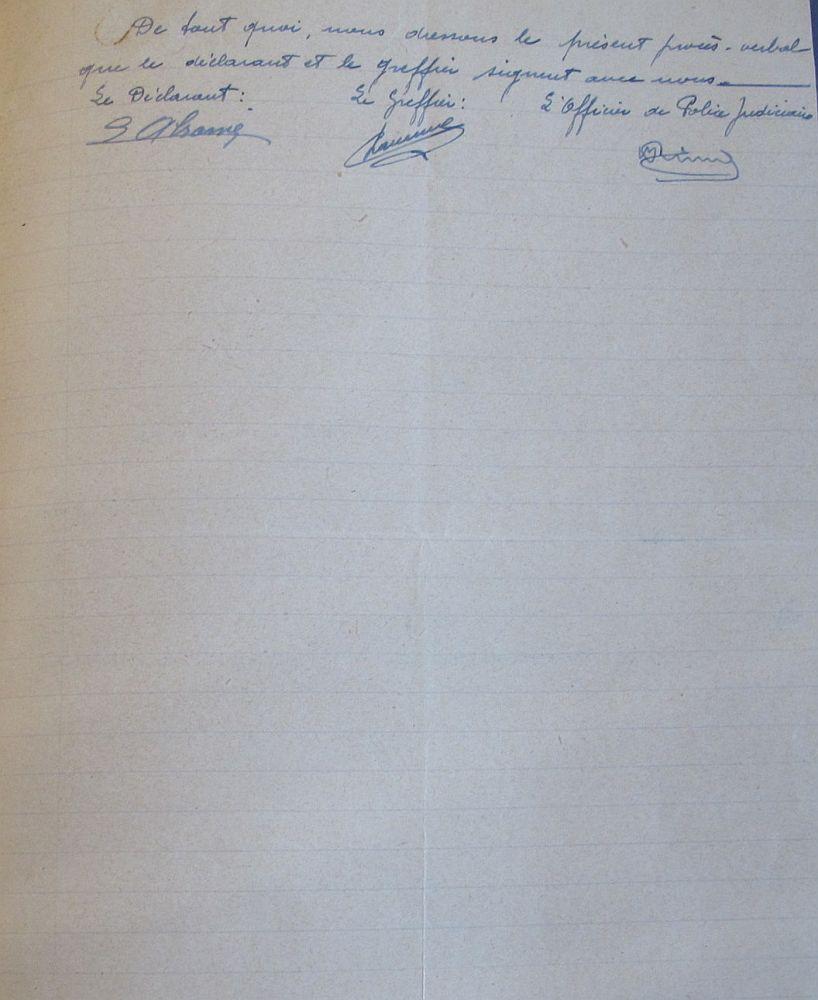 De tout quoi, nous dressons le présent procès-verbal
que le déclarant et le greffier signent avec nous.
Le Déclarant: Le Greffier: L'Officier de Police Judiciaire